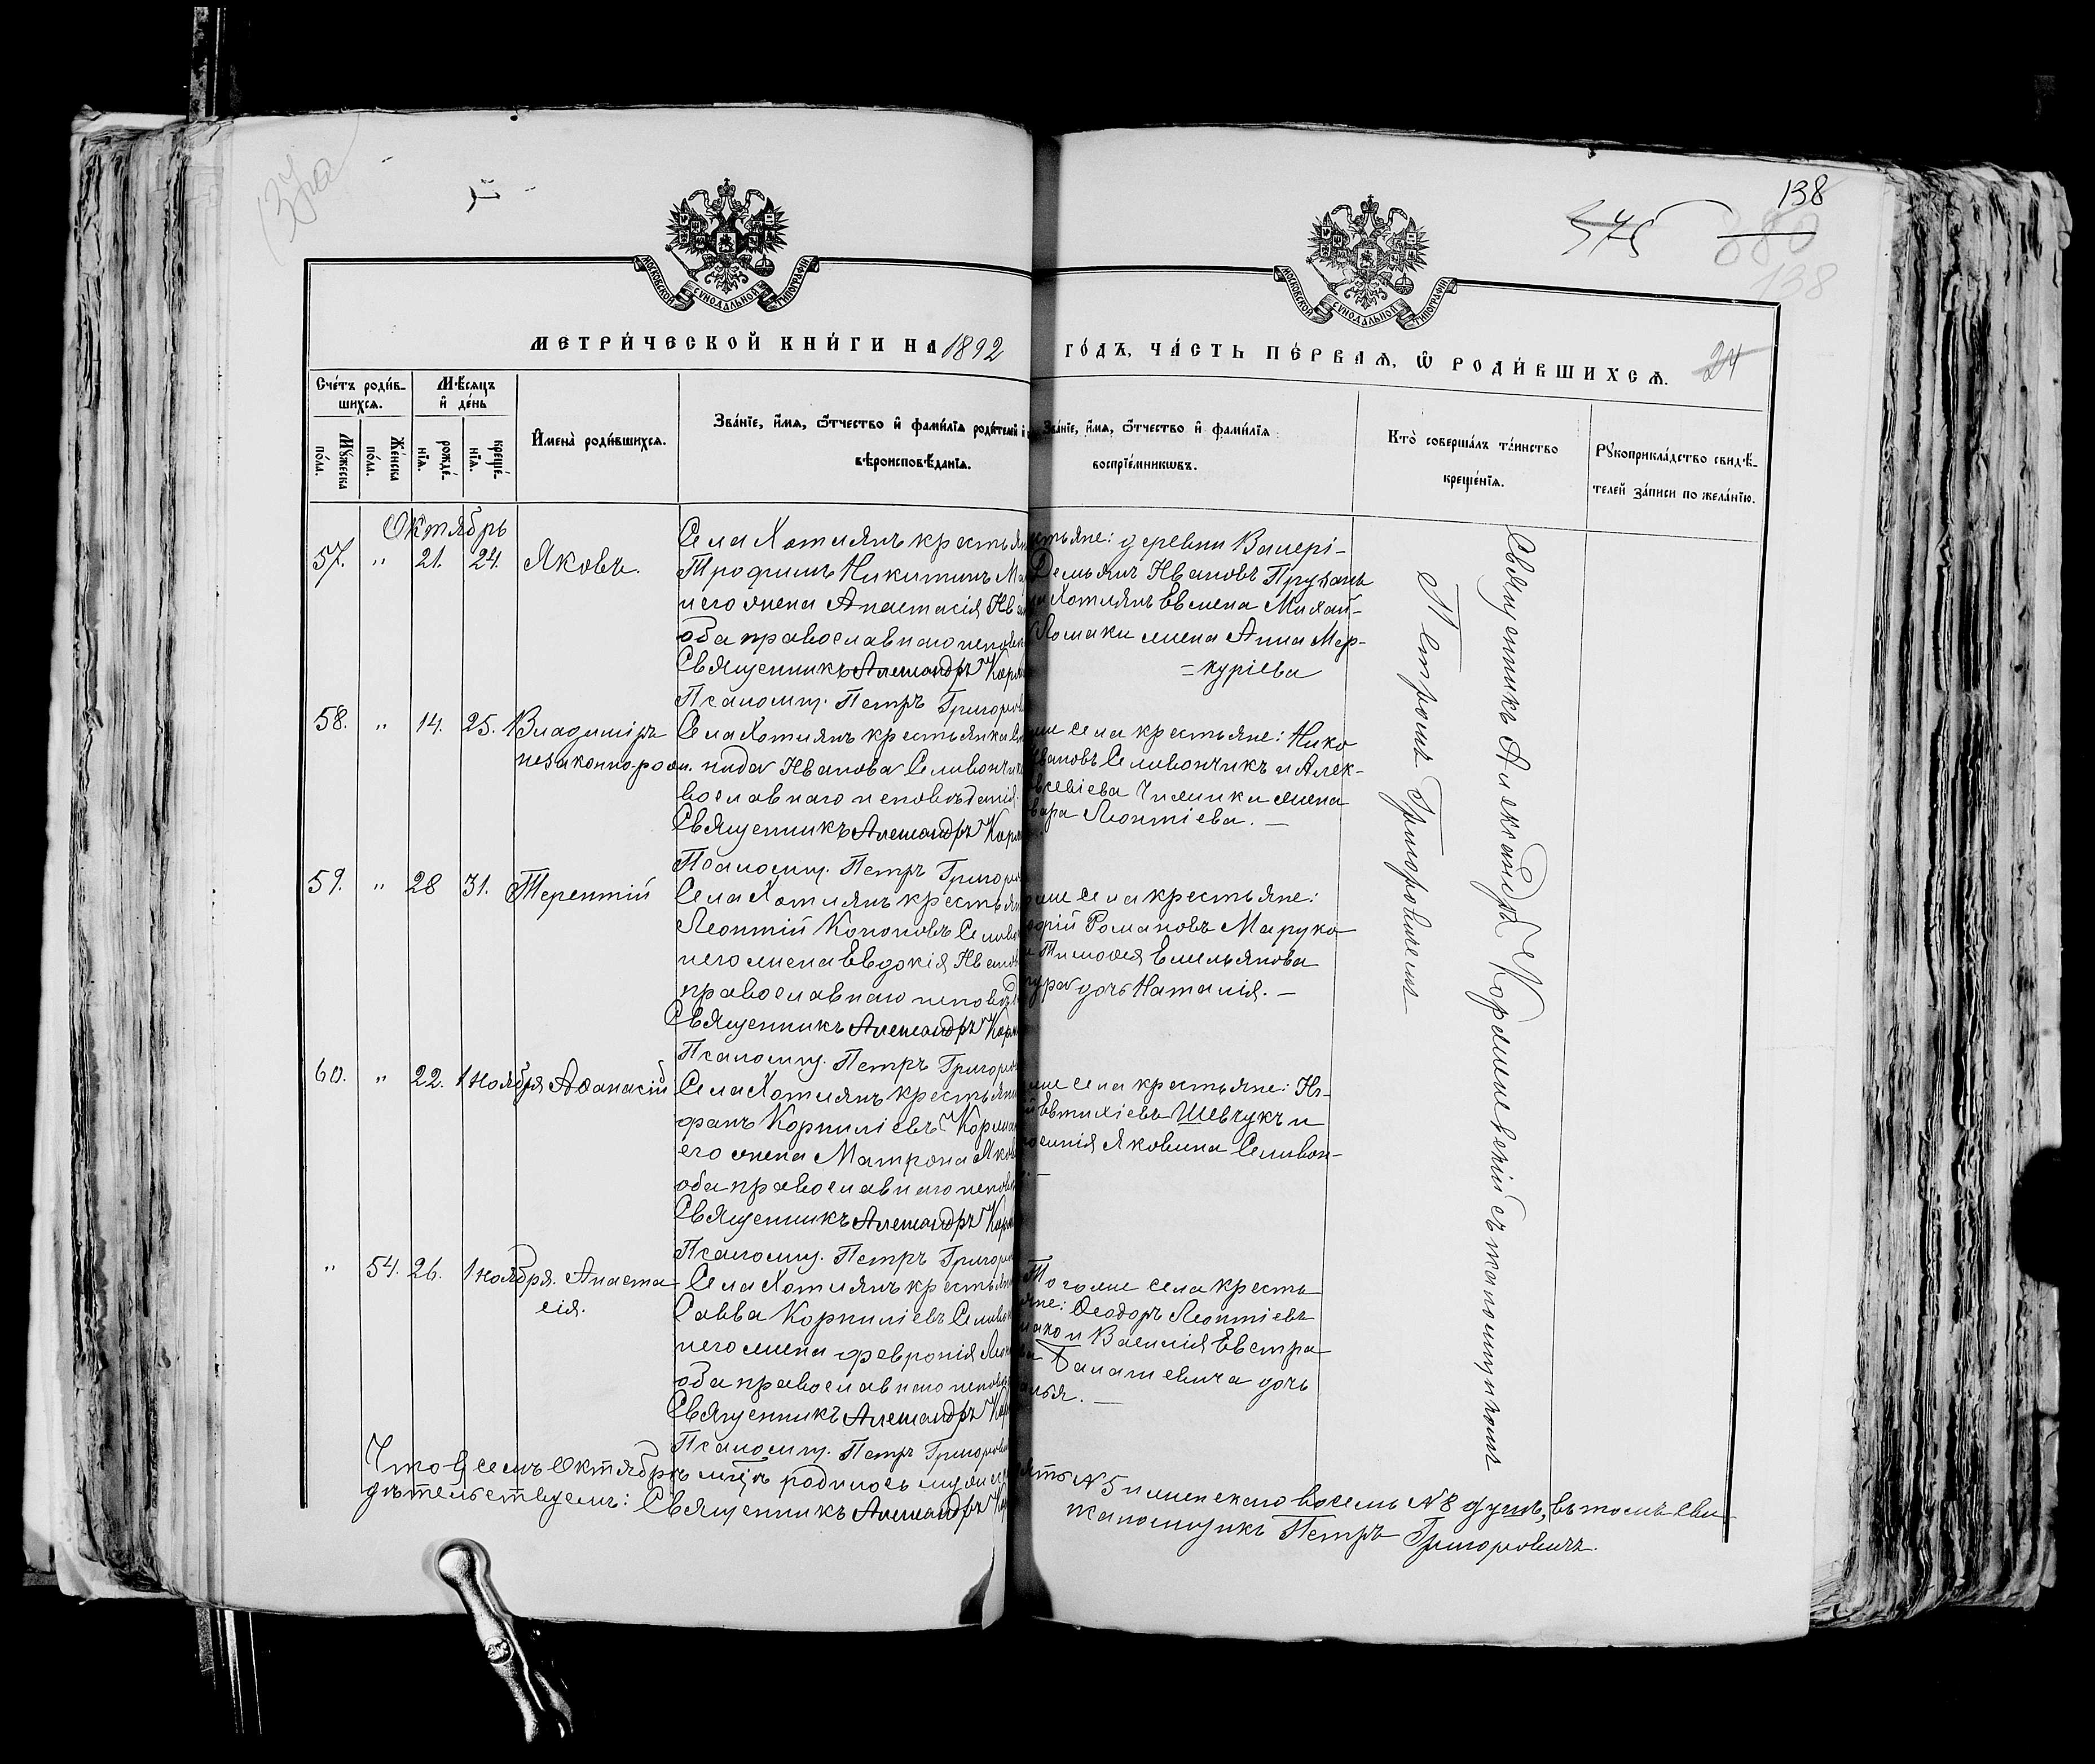 137 об
138
575
580
138
МОСКОВСКОЙ СѴНОДАЛЬНОЙ ТИПОГРАФІИ
МОСКОВСКОЙ СѴНОДАЛЬНОЙ ТИПОГРАФІИ
МЕТРИ́ЧЕСКОЙ КНИ́ГИ НА 1892
ГО́ДЪ, ЧА́СТЬ ПЕ́РВАѦ, Ѡ҆ РОДИ́ВШИХСѦ.
24
Сче́тъ роди́в-
шихсѧ.
Мꙋ́жеска
по́ла.
Же́нска
по́ла.
Мѣ́сѧцъ
и҆ де́нь
рожде́-
нїѧ.
креще́-
нїѧ.
И҆мена̀ роди́вшихсѧ.
Зва́нїе, и҆́мѧ, ѻ҆́тчество и҆ фами́лїѧ роди́телей и҆
вѣроисповѣ́данїѧ.
Зва́нїе, и҆́мѧ, ѻ҆́тчество и҆ фами́лїѧ
воспрїе́мникѡвъ.
Кто̀ соверша́лъ та́инство
креще́нїѧ.
Рꙋкоприкла́дство свидѣ́-
телей за́писи по жела́нїю.
Октябрь
57. " 21. 24. Яковъ.
Села Хотлянъ крестьян
Трофимъ Никитинъ Ма
и его жена Анастасія Ив
оба православнаго исповѣ
Священникъ Александръ Корж
Псаломщ. Петръ Григоров
стьяне: деревни Валері-
Демьянъ Ивановъ
Хотлянъ Евмена Михай-
Ломаки жена Анна Мер-
=куріева
58. " 14. 25. Владиміръ
незаконно-рожд.
Села Хотлянъ крестьянка
нида Иванова Селивончик
вославнаго исповѣданія.
Священникъ Александръ Корж
Псаломщ. Петръ Григоров
же села крестьяне: Нико
Ивановъ Селивончикъ и Алек-
Евсевіева жена
вара Леонтіева. —
59. " 28 31. Терентій
Села Хотлянъ крестьян
Леонтій Кононовъ Селиво
и его жена Евдокія Иванов
православнаго исповѣд
Священникъ Александръ Корж
Псаломщ. Петръ Григоров
же села крестьяне:
Романовъ Маруко
Тимофея Емельянова
дочь Наталія. —
60. " 22. 1 Ноября Аѳанасій
Села Хотлянъ крестьян
фанъ Корниліевъ Коржа
его жена Матрона Яков
оба православнаго исповѣ
Священникъ Александръ Корж
Псаломщ. Петръ Григоров
же села крестьяне: Ни-
Евтихіевъ Шевчукъ и
Яковина Селивон-
" 54. 26. 1 Ноября. Анаста
сія.
Села Хотлянъ крестьян
Савва Корниліевъ Селивон
и его жена Февронія Леон
оба православнаго исповѣ
Священникъ Александръ Кор
Псаломщ. Петръ Григоров
Того же села кресть
яне: Ѳеодоръ Леонтіевъ
и Василія Евстра
Балашевича дочь
Священникъ Александръ Коржиневскій съ псаломщикомъ
Петромъ Григоровичемъ
Что въ семъ Октябрѣ мц҃ѣ родилось мужеск
ять № 5 и женскаго восемь № 8 душъ, въ томъ сви-
дѣтельствуемъ: Священникъ Александръ Кор
Псаломщикъ Петръ Григоровичъ.